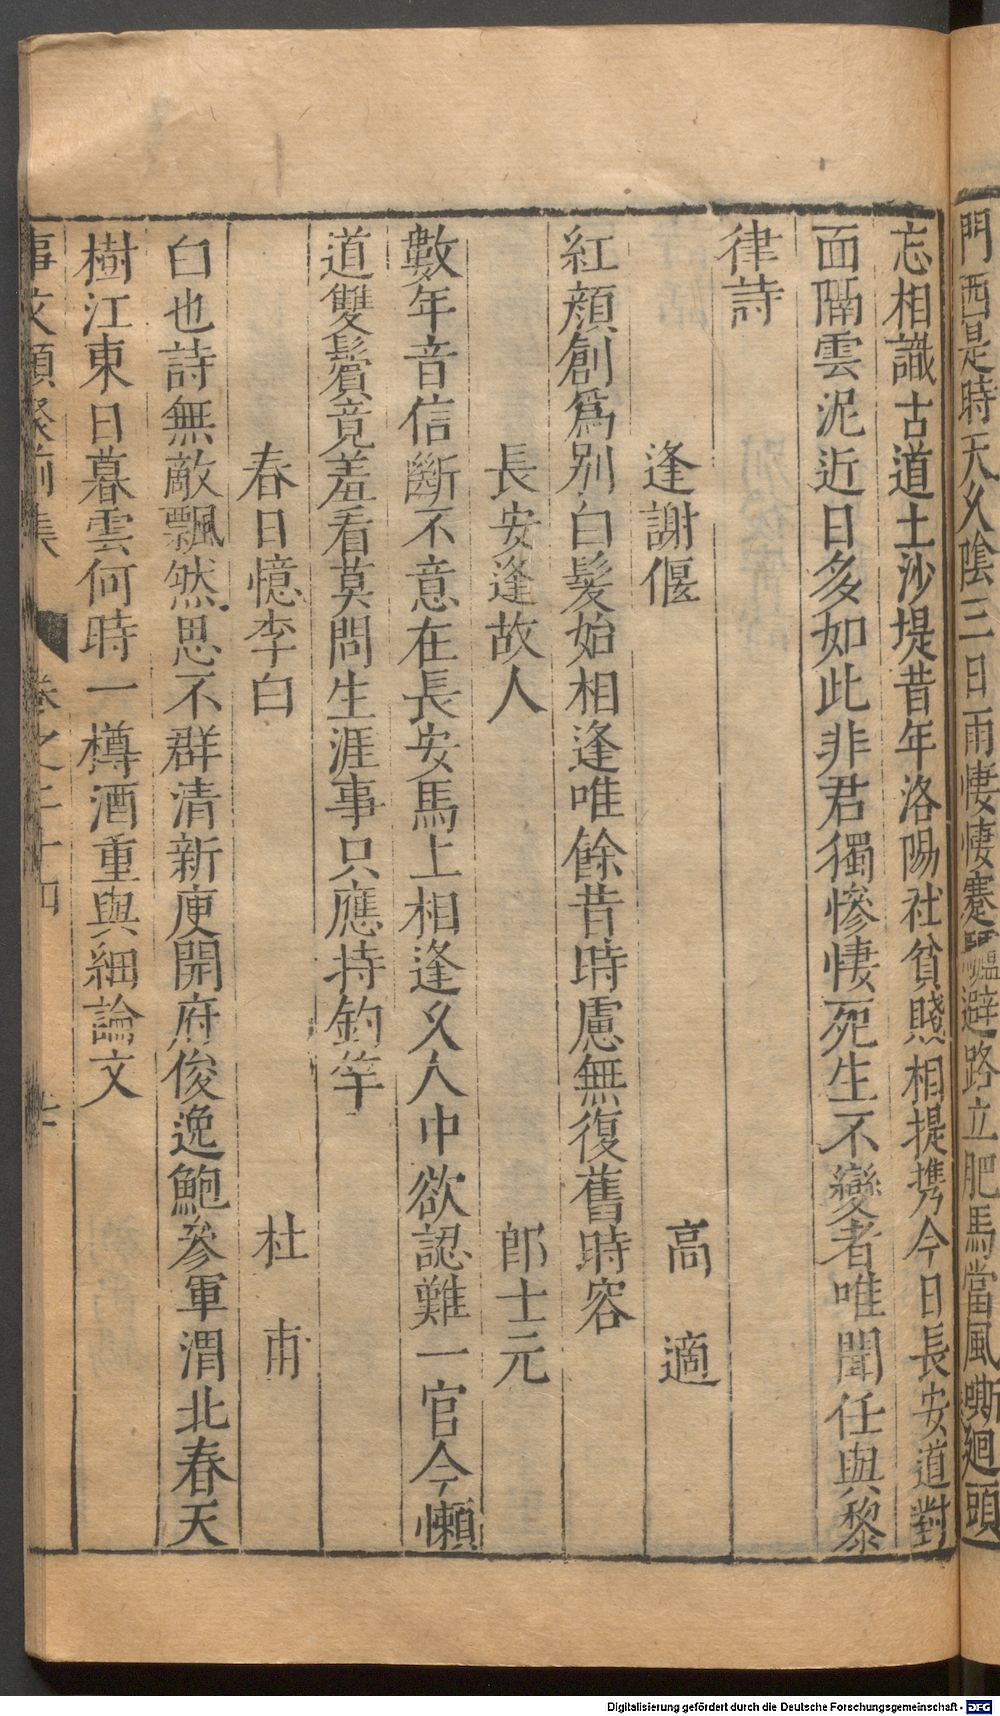 門西是時天久陰三日雨悽悽蹇驢避路立肥馬當風嘶廻頭
忘相識古道土沙堤昔年洛陽社貧賤相提攜今日長安道對
面隔雲泥近日多如此非君獨慘悽死生不變者唯聞任與黎
律詩
逢謝偃 高適
紅顔創爲别白髮始相逢唯餘昔時慮無復舊時容
長安逢故人 郎士元
數年音信斷不意在長安馬上相逢久人中欲認難一官今懶
道雙鬢竟羞看莫問生涯事只應持釣竿
春日憶李白 杜甫
白也詩無敵飄然思不群清新庾開府俊逸鮑參軍渭北春天
樹江東日暮雲何時一樽酒重與細論文
事文類聚前集 卷之二十四
Digitalisierung gefördert durch die Deutsche Forschungsgemeinschaft - DFG